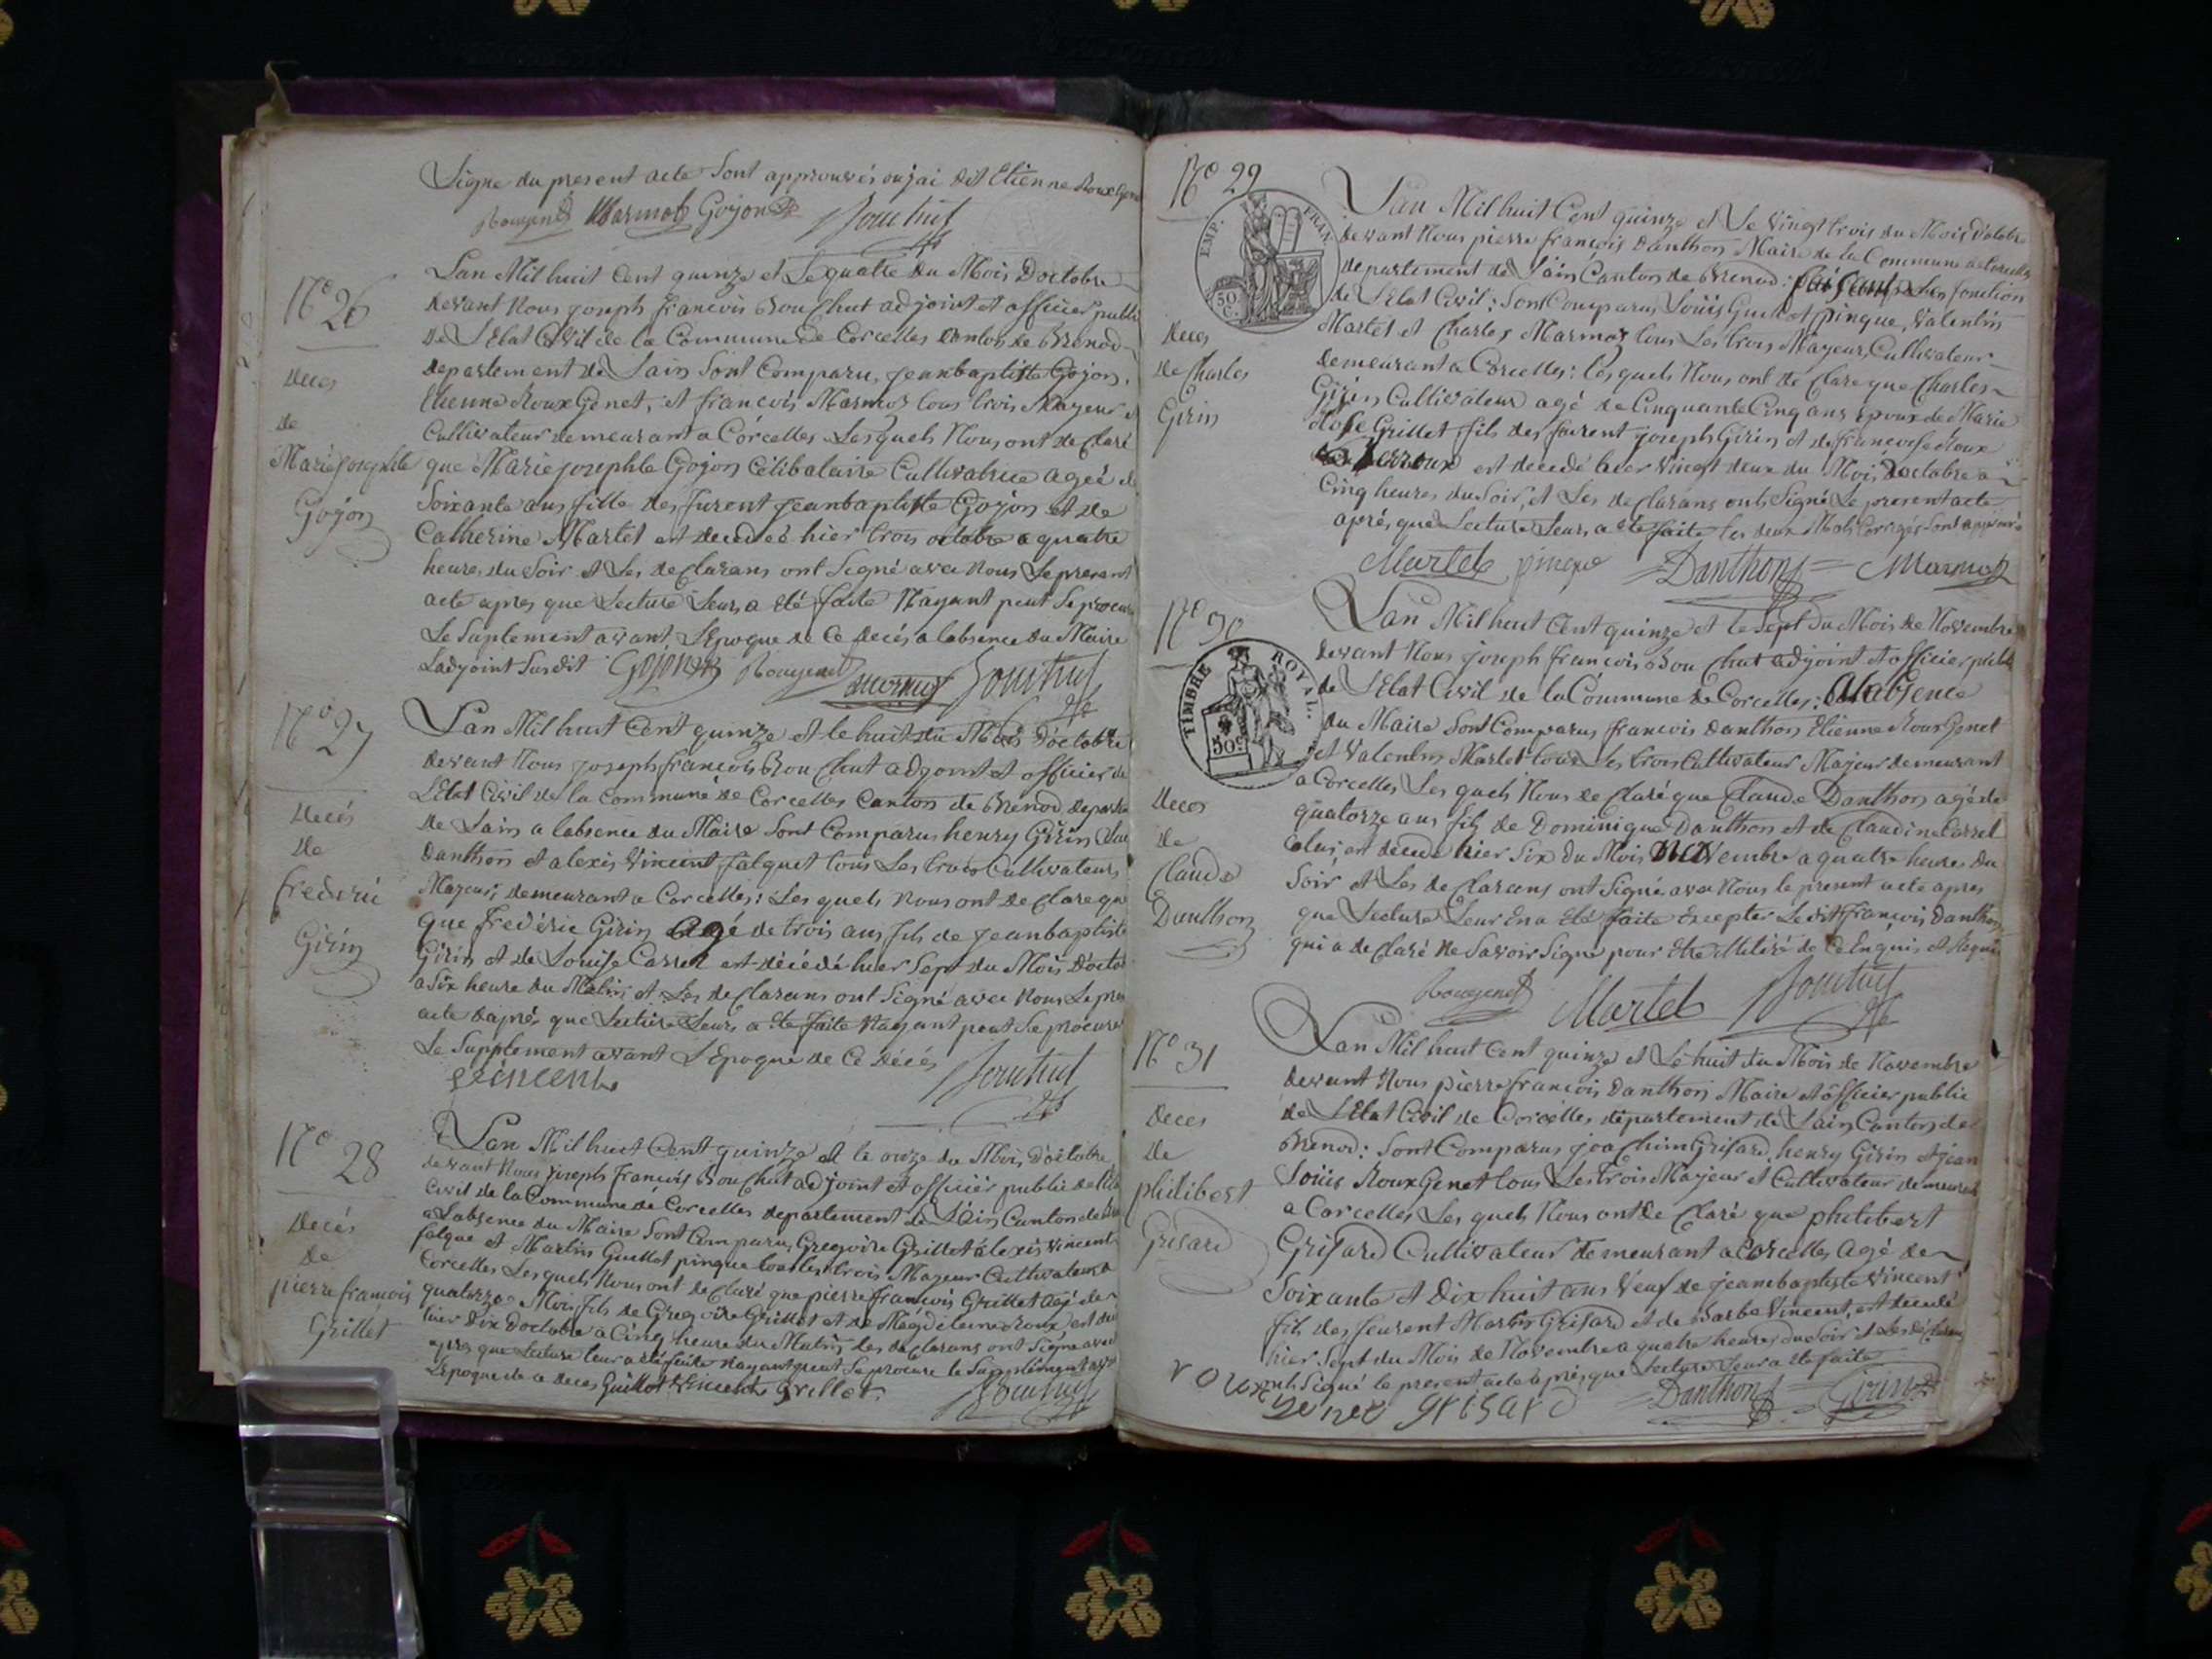 Signe du present acte Sont approuvés ou jai dit Etienne Roux Genet
Rougenet Marmot Gojon Bouchut
N.o 26
deces
de
Marie josephte
Gojon
Lan Mil huit Cent quinze et Le quatre du Mois Doctobre
devant Nous joseph francois Bouchut adjoint et officier public
De L'Etat Civil de la Commune de Corcelles Canton de Brenod
departement de Lain Sont Comparu, jeanbaptiste Gojon,
Etienne Roux Genet, et francois Marmot tous trois Majeur et
Cultivateur demeurant a Corcelles Lesquels Nous ont declaré
que Marie josephte Gojon Célibataire Cultivatrice agéé de
Soixante ans fille des furent jeanbaptiste Gojon et de
Catherine Martel est decedeé hier trois octobre a quatre
heures du Soir et Les declarans ont Signé avec Nous Le present
acte apres que Lecture Leurs a eté faite Nayant peut Se procurer
Le Suplement avant L'Epoque de Ce decés a labsence du Maire
Ladjoint Susdit Gojon Rougenet Marmot Bouchut
N.o 27
Decés
de
frederic
Girin
Lan Mil huit Cent quinze et le huit du Mois D'octobre
devant Nous joseph francois Bouchut adjoint et officier de
L'Etat Civil de la Commune de Corcelles Canton de Brenod depart
de Lain a labsence du Maire Sont Comparus henry Girin
Danthon et alexis Vincent falquet tous Les trois Cultivateurs
Majeur, demeurant a Corcelles: Lesquels Nous ont declare que
que frederic Girin agé de trois ans fils de jeanbaptiste
Girin et de Louise Carrel est décédé hier Sept du Mois D'octob
a Six heure du Matin et Les declarans ont Signé avec Nous Le pres
acte Daprés que Lecture Leurs a ete faite Nayant peut Se procurer
Le Supplement avant L'Epoque de Ce Décés
Bouchut
N.o 28
Decés
de
pierre francois
Grillet
Lan Mil huit Cent quinze et le onze du Mois D'octobre
devant Nous joseph francois Bouchut adjoint et officier public de l'Etat
Civil de la Commune de Corcelles departement de L'ain Canton de
a Labsence du Maire Sont Comparu, Gregoire Grillet alexis Vincent
falque et Martin Guillot pinque tous les trois Majeur Cultivateur a
Corcelles Lesquels Nous ont declaré que pierre francois Grillet agé de
quatorze Mois fils de Gregoire Grillet et de Magdeleine Roux est
hier Dix Doctobre a Cinq heure du Matin, les declarans ont Signé avec
apres que Lecture leur a eté faite Nayant peut Se procure le Supplement avant
L'Epoque de ce deces Guillot Vincent Grillet.
Bouchut
N.o 29
EMP. FRAN.
50 C.
Deces
de Charles
Girin
Lan Mil huit Cent quinze et Le Vingt trois du Mois D'octobre
devant Nous pierre françois Danthon Maire de la Commune de Corcelles
departement de L'ain Canton de Brenod: faisant Les fonction
de L'Etat Civil: Sont Comparus Loüis Guillot pinque, Valentin
Martel et Charles Marmot tous Les trois Majeur Cultivateur
demeurant a Corcelles: Lesquels Nous ont declare que Charles
Girin Cultivateur agé de Cinquante Cinq ans epoux de Marie
Rose Grillet fils des furent joseph Girin et de françoise Roux
est decedé hier Vingt deux du Mois Doctobre a
Cinq heures du Soir, et Les declarans onts Signé Le present acte
aprés que Lecture Leurs a eté faite les deux Mots Corrigés Sont approuvé
Martel pinque Danthon Marmot
N.o 30
TIMBRE ROYAL.
50 c
deces
de
Claude
Danthon
Lan Mil huit Cent quinze et le Sept du Mois de Novembre
devant Nous joseph francois Bouchut adjoint et officier public
de L'Etat Civil de la Commune de Corcelles: a labsence
du Maire Sont Comparus francois Danthon Etienne Roux Genet
et Valentin Martel tous Les trois Cultivateur Majeur demeurant
a Corcelles Lesquels Nous declaré que Claude Danthon agé de
quatorze ans fils de Dominique Danthon et de Claudine Carrel
est decede hier Six du Mois Novembre a quatre heures du
Soir, et Les declarans ont Signé avec Nous le present acte apres
que Lecture Leur En a Eté faite Excepter Le dit francois Danthon
qui a declaré Ne Savoir Signe pour Etre de Ce Enquis et Requis
Rougenet Martel Bouchut
N.o 31
Deces
de
philibert
Grisard
Lan Mil huit Cent quinze et Le huit du Mois de Novembre
devant Nous pierre francois Danthon Maire et officier public
de L'Etat Civil de Corcelles departement de Lain Canton de
Brenod: Sont Comparus joachim Grisard, henry Girin et jean
Loüis Roux Genet tous Les trois Majeur et Cultivateur demeurant
a Corcelles, Lesquels Nous ont declaré que philibert
Grisard Cultivateur demeurant a Corcelles agé de
Soixante et Dix huit ans Veuf de jeanbaptiste Vincent
fils des feurent Martin Grisard et de Barbe Vincent, est decedé
hier Sept du Mois de Novembre a quatre heures du Soir et Les déclarans
onts Signé le present acte aprés que Lecture Leur a eté faite
roux genet grisard Danthon Girin